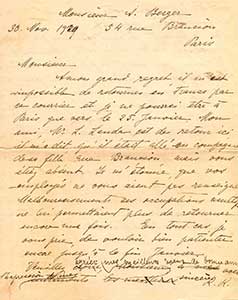 Monsieur A. Berger
30. Nov. 1929 54 rue Brancion
Paris
Monsieur
A mon grand regret il m'est
impossible de retourner en France par
ce courrier et je ne pourrai être à
Paris que vers le 25 Janvier. Mon
ami, Mr L. est de retour ici
et m'a dit qu'il était allé en compagnie
de sa fille rue Brancion, mais vous
étiez absent. Je m'étonne que vos
employés ne vous aient pas renseigné.
Malheureusement ses occupations multiples
ne lui permettaient plus de retourner
encore une fois. En tout cas je
vous prie de vouloir bien patienter
encore jusqu'à la fin Janvier.
Veuillez mes meilleurs
Monsieur
sincères
R. K.